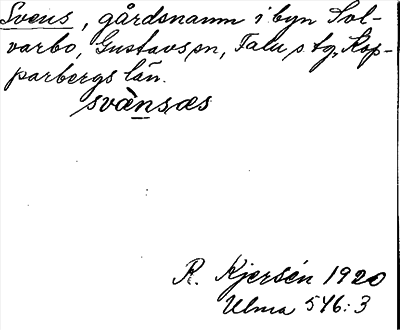 Svens, gårdsnamn i byn Sol-
varbo, Gustavs sn, Falu s tg, Kop-
parbergs län.
svànsæs
R. Kjersén 1920
Ulma 546:3